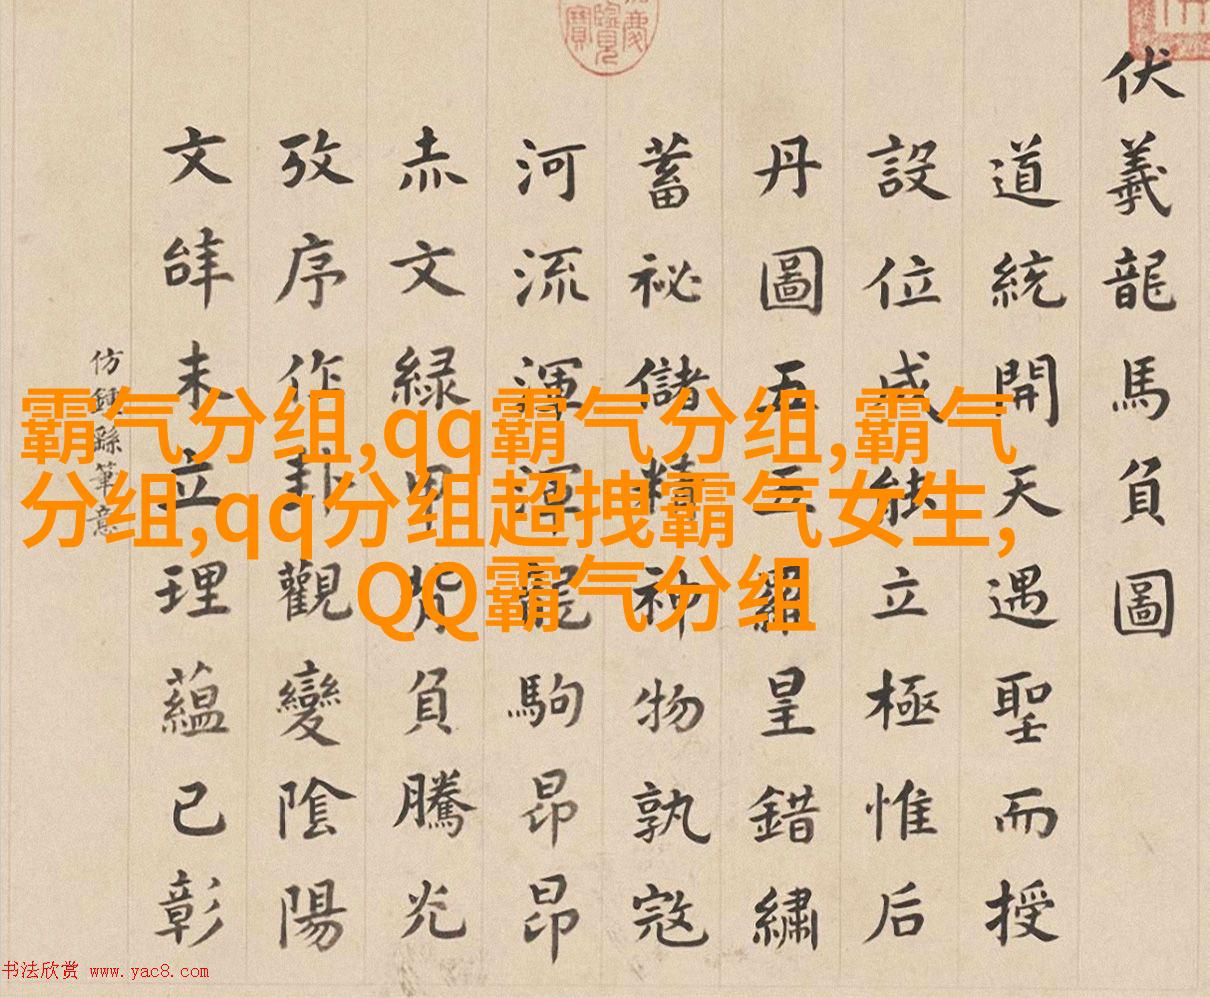 伏羲龍馬負圖
道統開天遇聖而授
設位成能立極惟后
丹圖五三羅皇錯繡
蓄祕儲精神物孰寇
河流渾渾龍駒昂昂
赤文緑甲背負騰光
攷序作卦觀變陰陽
文辝未立理蘊已彰
仿鍾繇筆意
霸气分组,qq霸气分组,霸气
分组,qq分组超拽霸气女生,
QQ霸气分组
书法欣赏 www.yac8.com